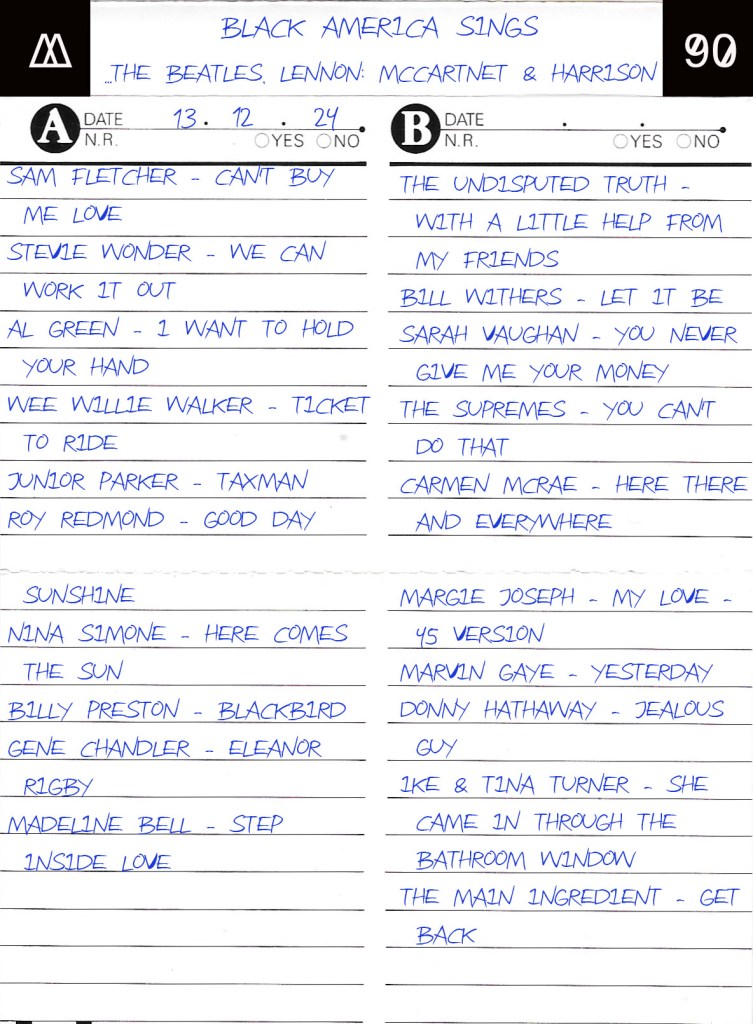 BLACK AMERICA SINGS
...THE BEATLES, LENNON: MCCARTNET & HARRISON
90
A DATE 13. 12. 24
N.R. YES NO
SAM FLETCHER - CAN'T BUY
ME LOVE
STEVIE WONDER - WE CAN
WORK IT OUT
AL GREEN - I WANT TO HOLD
YOUR HAND
WEE WILLIE WALKER - TICKET
TO RIDE
JUNIOR PARKER - TAXMAN
ROY REDMOND - GOOD DAY
SUNSHINE
NINA SIMONE - HERE COMES
THE SUN
BILLY PRESTON - BLACKBIRD
GENE CHANDLER - ELEANOR
RIGBY
MADELINE BELL - STEP
INSIDE LOVE
B DATE . .
N.R. YES NO
THE UNDISPUTED TRUTH -
WITH A LITTLE HELP FROM
MY FRIENDS
BILL WITHERS - LET IT BE
SARAH VAUGHAN - YOU NEVER
GIVE ME YOUR MONEY
THE SUPREMES - YOU CAN'T
DO THAT
CARMEN MCRAE - HERE THERE
AND EVERYWHERE
MARGIE JOSEPH - MY LOVE -
45 VERSION
MARVIN GAYE - YESTERDAY
DONNY HATHAWAY - JEALOUS
GUY
IKE & TINA TURNER - SHE
CAME IN THROUGH THE
BATHROOM WINDOW
THE MAIN INGREDIENT - GET
BACK